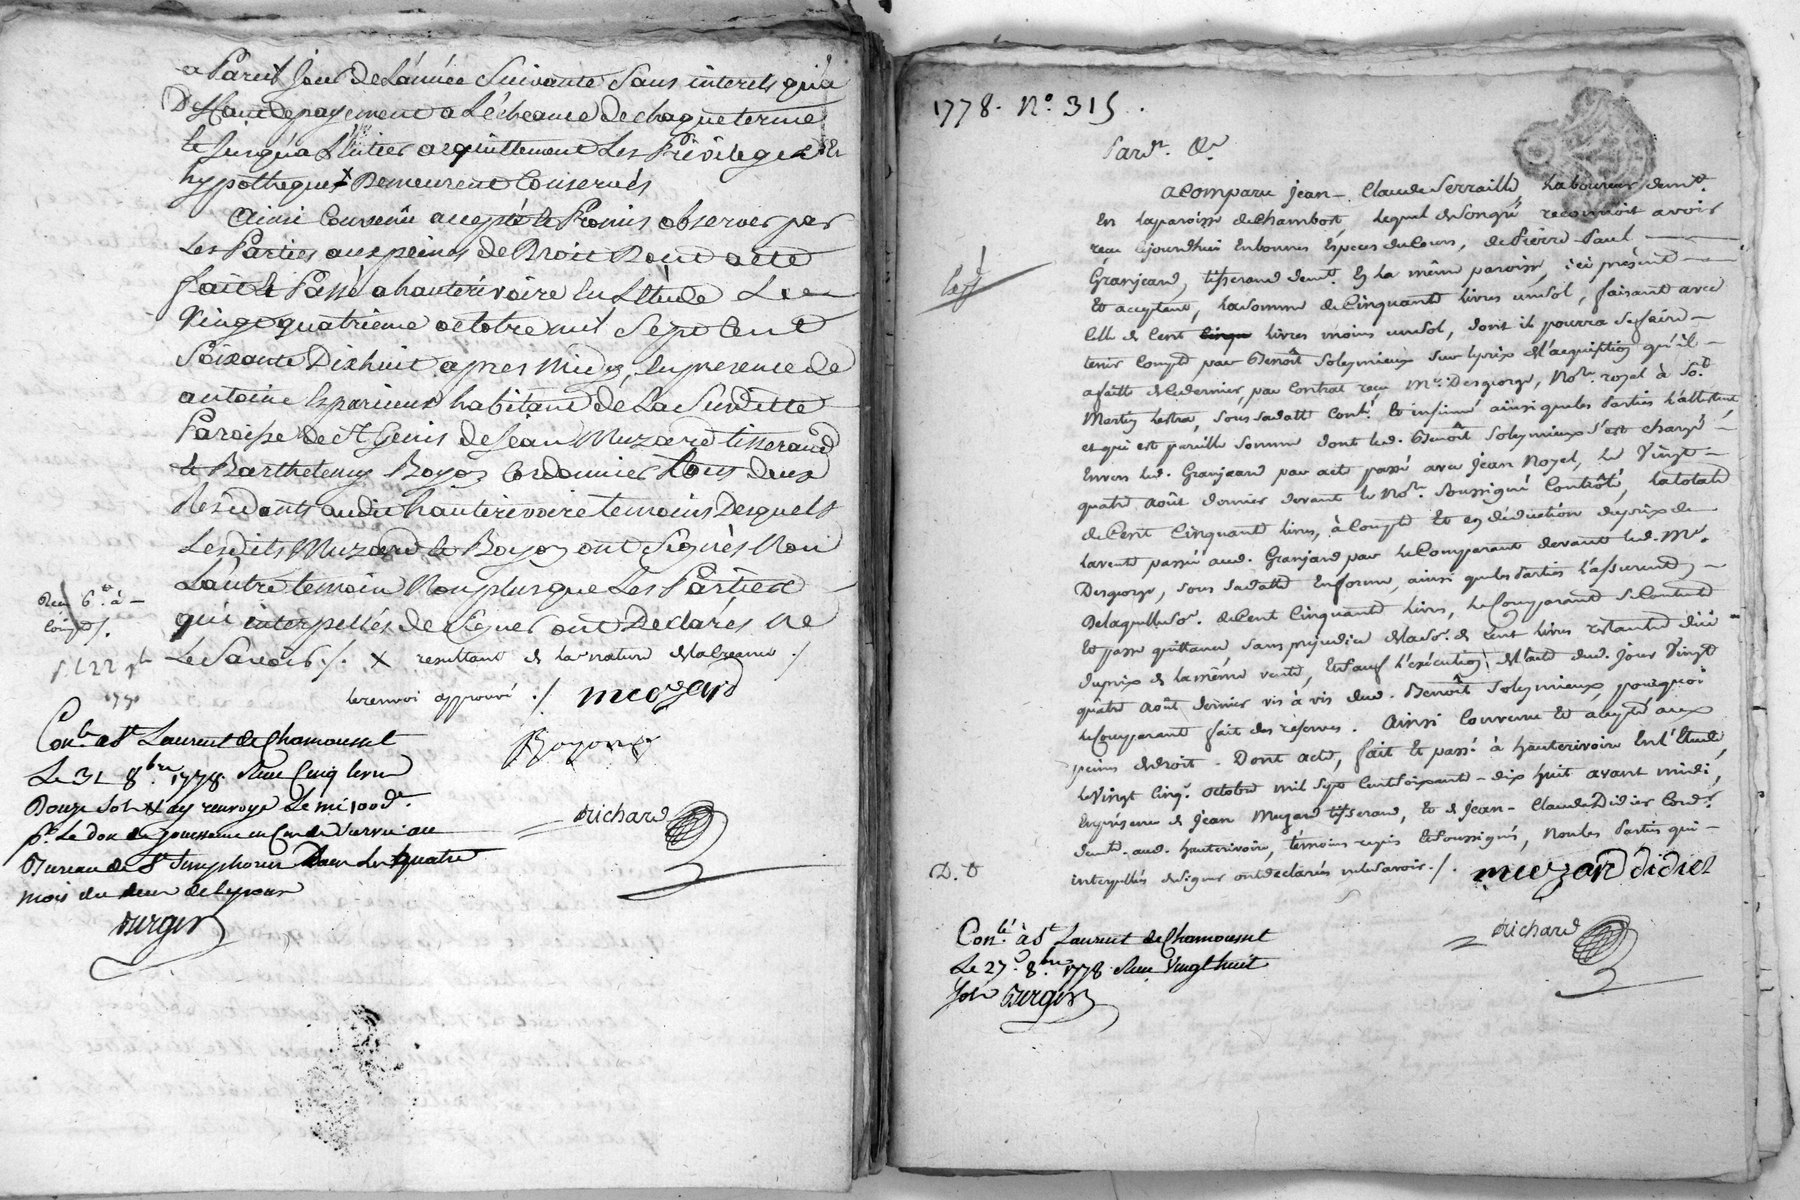 a Pareil Jour de L'année Suivante Sans interets qu'a
Deffaut de payement a L'echeance de chaque terme
le Jusqu'a L'Entier acquittement Les Privileges Et
hypotheques x Demeurent Conservés
Ainsi Convenû accepté le Promis observer par
Les Parties aux peines de Droit Dont acte
fait Et Passé a hauterivoire En L'étude Le
Vingt quatrieme octobre mil Sept Cent
Soixante Dixhuit apres Midy, En presence de
antoine Esparieux habitant de La Susditte
Paroisse de St Genis de Jean Muzard tisserand
le Barthelemy Boyon Cordonnier tous deux
Résidants audit hauterivoire temoins Desquels
Lesdits Muzard le Boyon ont Signés Non
L'autre temoin Non plus que Les Parties
qui interpellés de Signer ont Déclarés Ne
Le Savoir ./. x resultant de la nature de la creance ./
le renvoi approuvé ./ meuzard
Boyon
Richard
1790
Con.lé a St Laurent de Chamousset
Le 31 8bre 1778. Reçu Cinq livres
Douze Sols x ay renvoyé Le
Bureau de St Simphorien Dans Les quatre
mois du
Berger
1778. N.o 315.
Pard.t &.a
A Comparu Jean-Claude Serraille, Laboureur dem.t
En la paroisse de Chambost, lequel de Son gré reconnoit avoir
reçu ce jourd'hui En bonnes Especes du Cours, de Pierre Paul
Granjeard, tisserand dem.t En la même paroisse, ici présent
Et acceptant, la somme de Cinquante livres un sol, faisant avec
Celle de Cent livres moins un sol, dont il pourra se faire
tenir Compte par Benoît Soleymieux sur le prix de l'acquisition qu'il
a faitte de Ce dernier, par Contrat reçu M.e Desgorge, No.re royal à St
Martin Lestra, sous sa datte Cont.é Et insinué ainsi que les Parties l'attestent,
et qui est pareille Somme dont led. Benoît Soleymieux s'est chargé
Envers led. Granjeard par acte passé avec Jean Noyel, le Vingt
quatre Août dernier devant le No.re Soussigné Contrôlé, la totale
de Cent Cinquante livres, à Compte Et en déduction du prix de
la vente passée aud. Granjard par le Comparant devant led. M.e
Desgorge, sous sa datte En forme, ainsi que les Parties l'assurent,
De laquelle So.e de Cent Cinquante livres, le Comparant Se Contente
Et passe quittance sans prejudice de la So.e de Cent livres restante düe
du prix de la même vente, Et sauf l'exécution de l'acte dud. jour Vingt
quatre Août dernier vis à vis dud. Benoît Soleymieux, pourquoi
le Comparant fait des réserves. Ainsi Convenu Et accepté aux
peines de droit. Dont acte, fait Et passé à hauterivoire En l'Etude,
le Vingt Cinq.e octobre mil Sept Cent Soixante-dix huit avant midi,
En présence de Jean Muzard tisserand, Et de Jean-Claude Didier Cord.r
dem.t aud. hauterivoire, témoins requis Et soussignés, non les Parties qui
interpellés de signer ont declarés ne le savoir ./. meuzard didiet
D. D
Richard
Con.lé à St Laurent de Chamousset
Le 27 8bre 1778 Reçu Vingt huit
Sols Berger